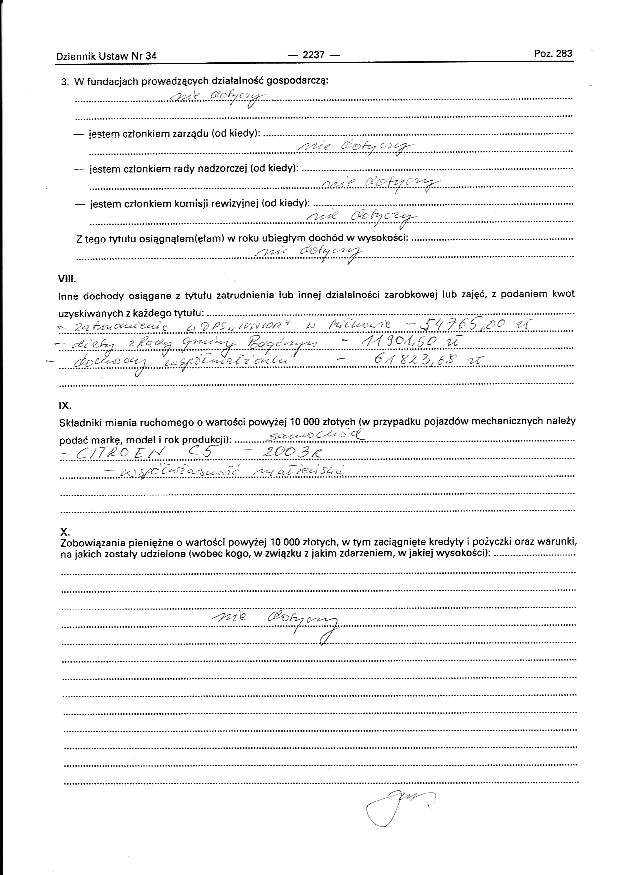 Dziennik Ustaw Nr 34 — 2237 — Poz. 283
3. W fundacjach prowadzących działalność gospodarczą:
nie dotyczy
— jestem członkiem zarządu (od kiedy):
nie dotyczy
— jestem członkiem rady nadzorczej (od kiedy):
nie dotyczy
— jestem członkiem komisji rewizyjnej (od kiedy):
nie dotyczy
Z tego tytułu osiągnąłem(ęłam) w roku ubiegłym dochód w wysokości:
nie dotyczy
VIII.
Inne dochody osiągane z tytułu zatrudnienia lub innej działalności zarobkowej lub zajęć, z podaniem kwot
uzyskiwanych z każdego tytułu:
- zatrudnienie w DPS w - 54765,00 zł
- diety z Rady Gminy - 11901,50 zł
- dochody współmałżonki - 61823,68 zł
IX.
Składniki mienia ruchomego o wartości powyżej 10 000 złotych (w przypadku pojazdów mechanicznych należy
podać markę, model i rok produkcji): samochód
- CITROEN C5 - 2003R
- współwłasność małżeńska
X.
Zobowiązania pieniężne o wartości powyżej 10 000 złotych, w tym zaciągnięte kredyty i pożyczki oraz warunki,
na jakich zostały udzielone (wobec kogo, w związku z jakim zdarzeniem, w jakiej wysokości):
nie dotyczy